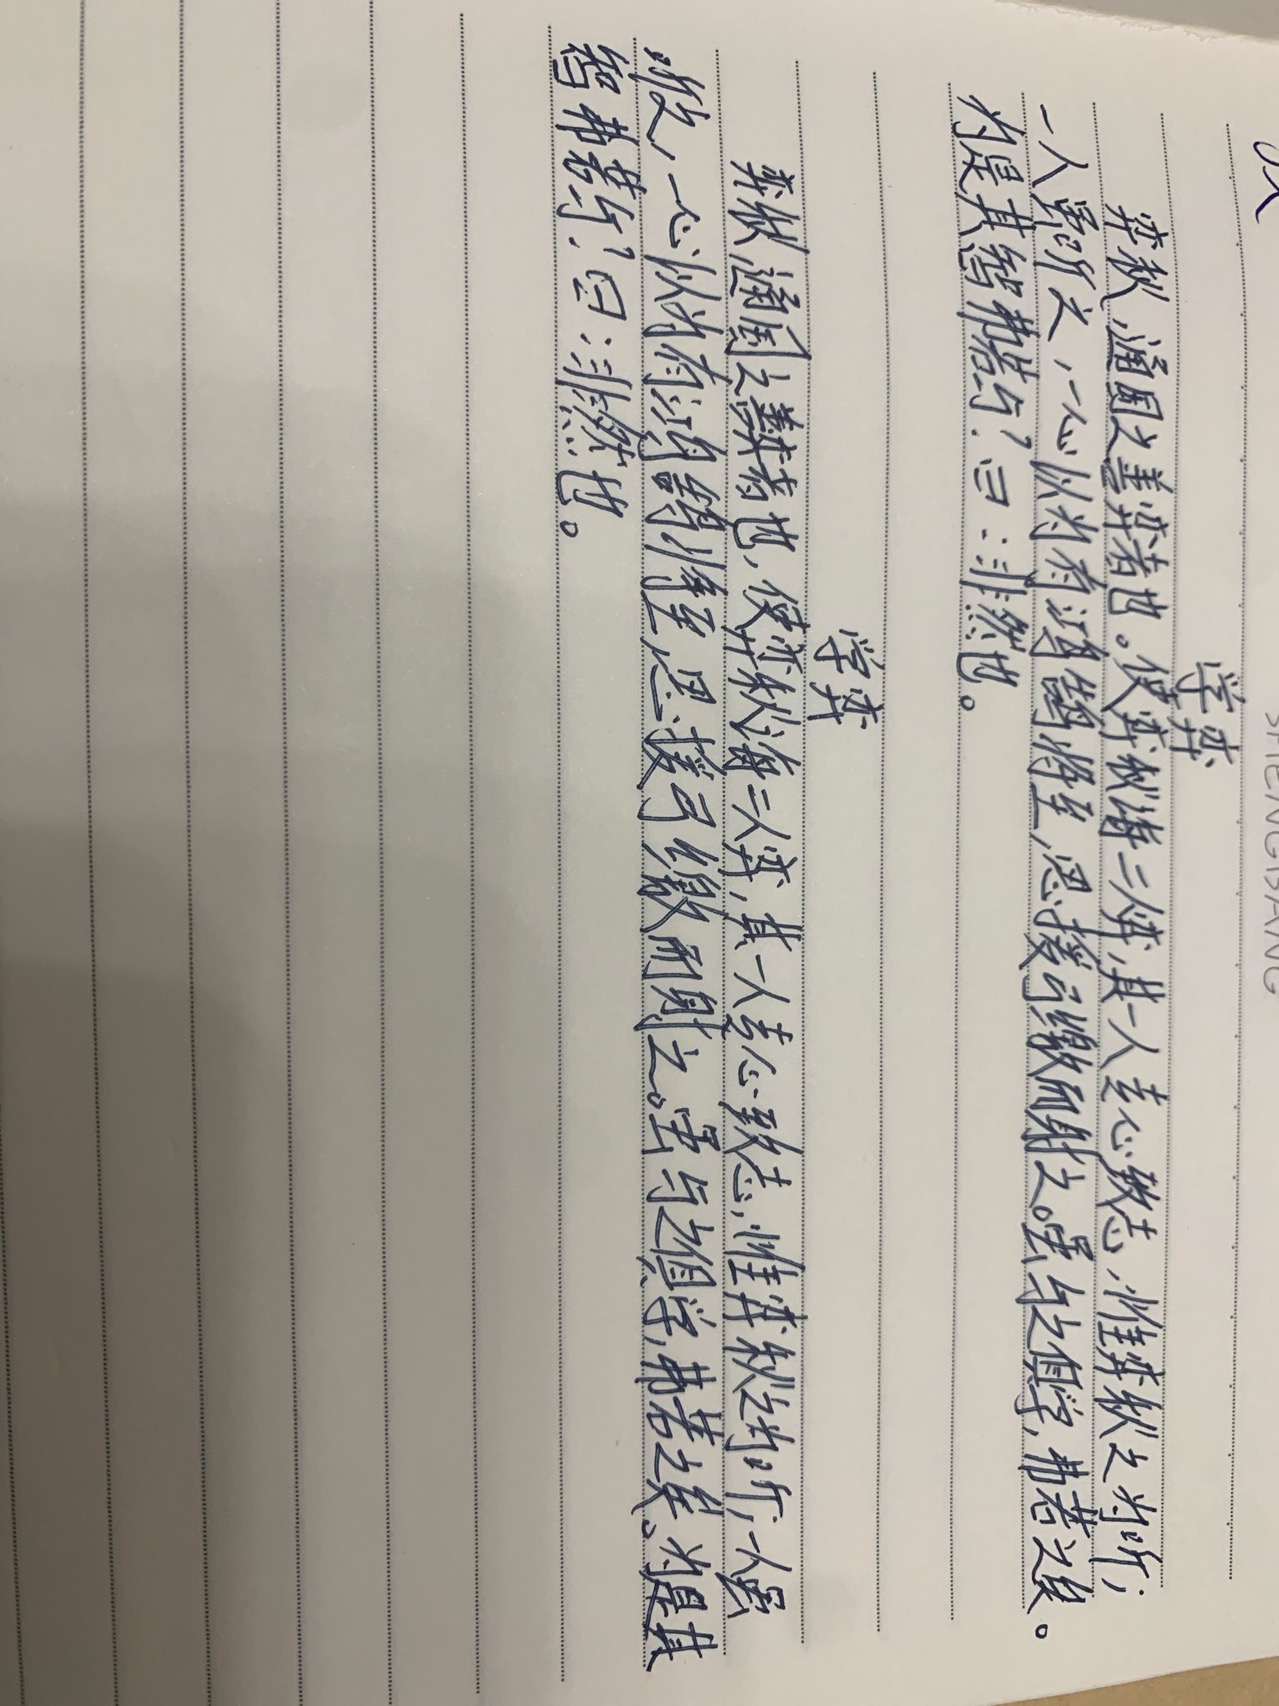 SHENGBANG
学弈
弈秋,通国之善弈者也。使弈秋诲二人弈,其一人专心致志,惟弈秋之为听;
一人虽听之,一心以为有鸿鹄将至,思援弓缴而射之。虽与之俱学,弗若之矣。
为是其智弗若与?曰:非然也。
学弈
弈秋,通国之善弈者也,使弈秋诲二人弈,其一人专心致志,惟弈秋之为听,一人虽
听之,一心以为有鸿鹄将至,思援弓缴而射之。虽与之俱学,弗若之矣。为是其
智弗若与?曰:非然也。